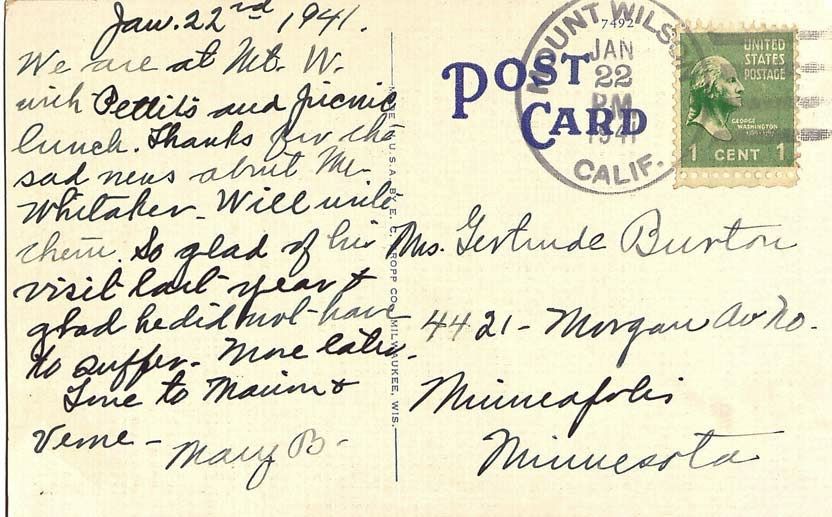 Jan. 22nd, 1941.
We are at Mt. W.
with Pettits and picnic
lunch. Thanks for the
sad news about Mr.
Whitaker. Will write
them. So glad of his
visit last year &
glad he did not have
to suffer. More later.
Love to Marion &
Verne -
Mary B -
MADE IN U.S.A. BY E. C. KROPP CO., MILWAUKEE, WIS.
7492
POST
CARD
MOUNT WILSON
JAN
22
PM
1941
CALIF.
UNITED
STATES
POSTAGE
GEORGE
WASHINGTON
1 CENT 1
Mrs. Gertrude Burton
4421 - Morgan Av No.
Minneapolis
Minnesota